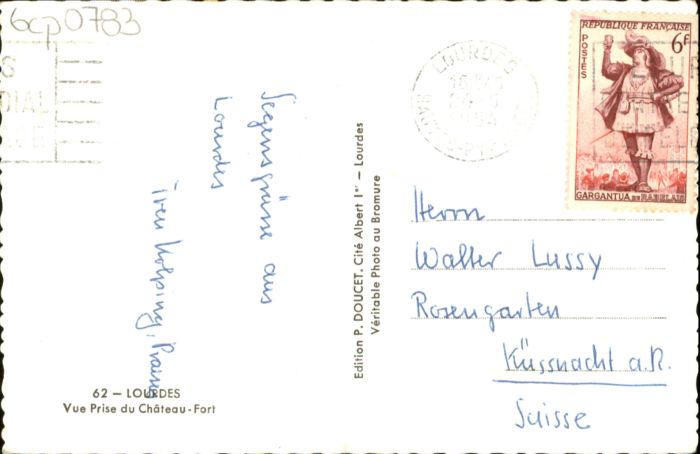 6cp0783
S
DIAL
Segensgrüsse aus
Lourdes
Treu Kolping,
62 — LOURDES
Vue Prise du Château-Fort
Edition P. DOUCET. Cité Albert Iᵉʳ — Lourdes
Véritable Photo au Bromure
LOURDES
RÉPUBLIQUE FRANÇAISE
POSTES
6f
GARGANTUA DE RABELAIS
Herrn
Walter Lussy
Rosengarten
Küssnacht a.R.
Suisse